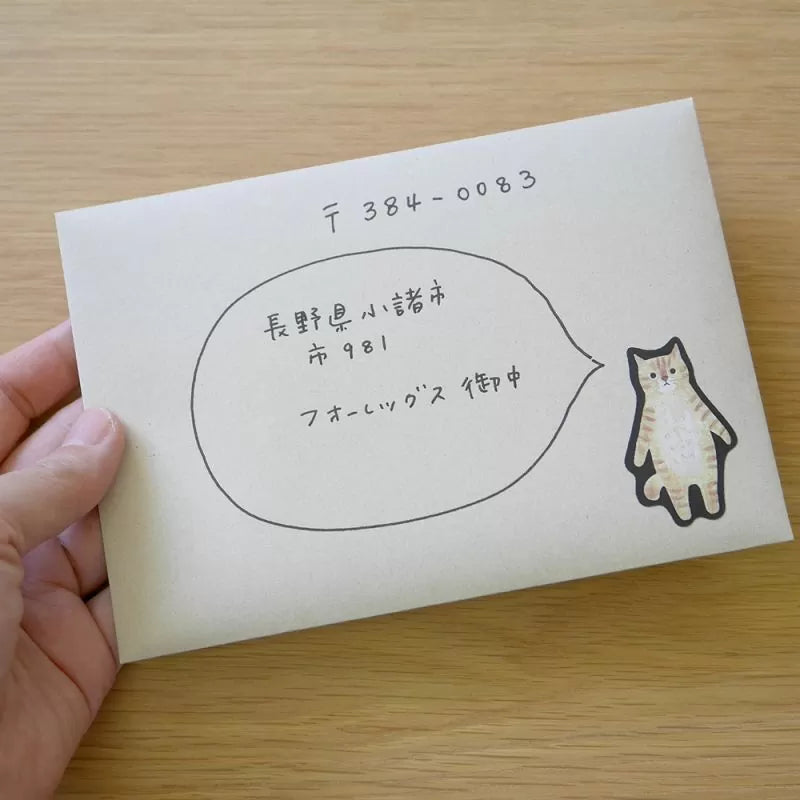 〒384-0083
長野県小諸市
市981
フォーレッグス 御中